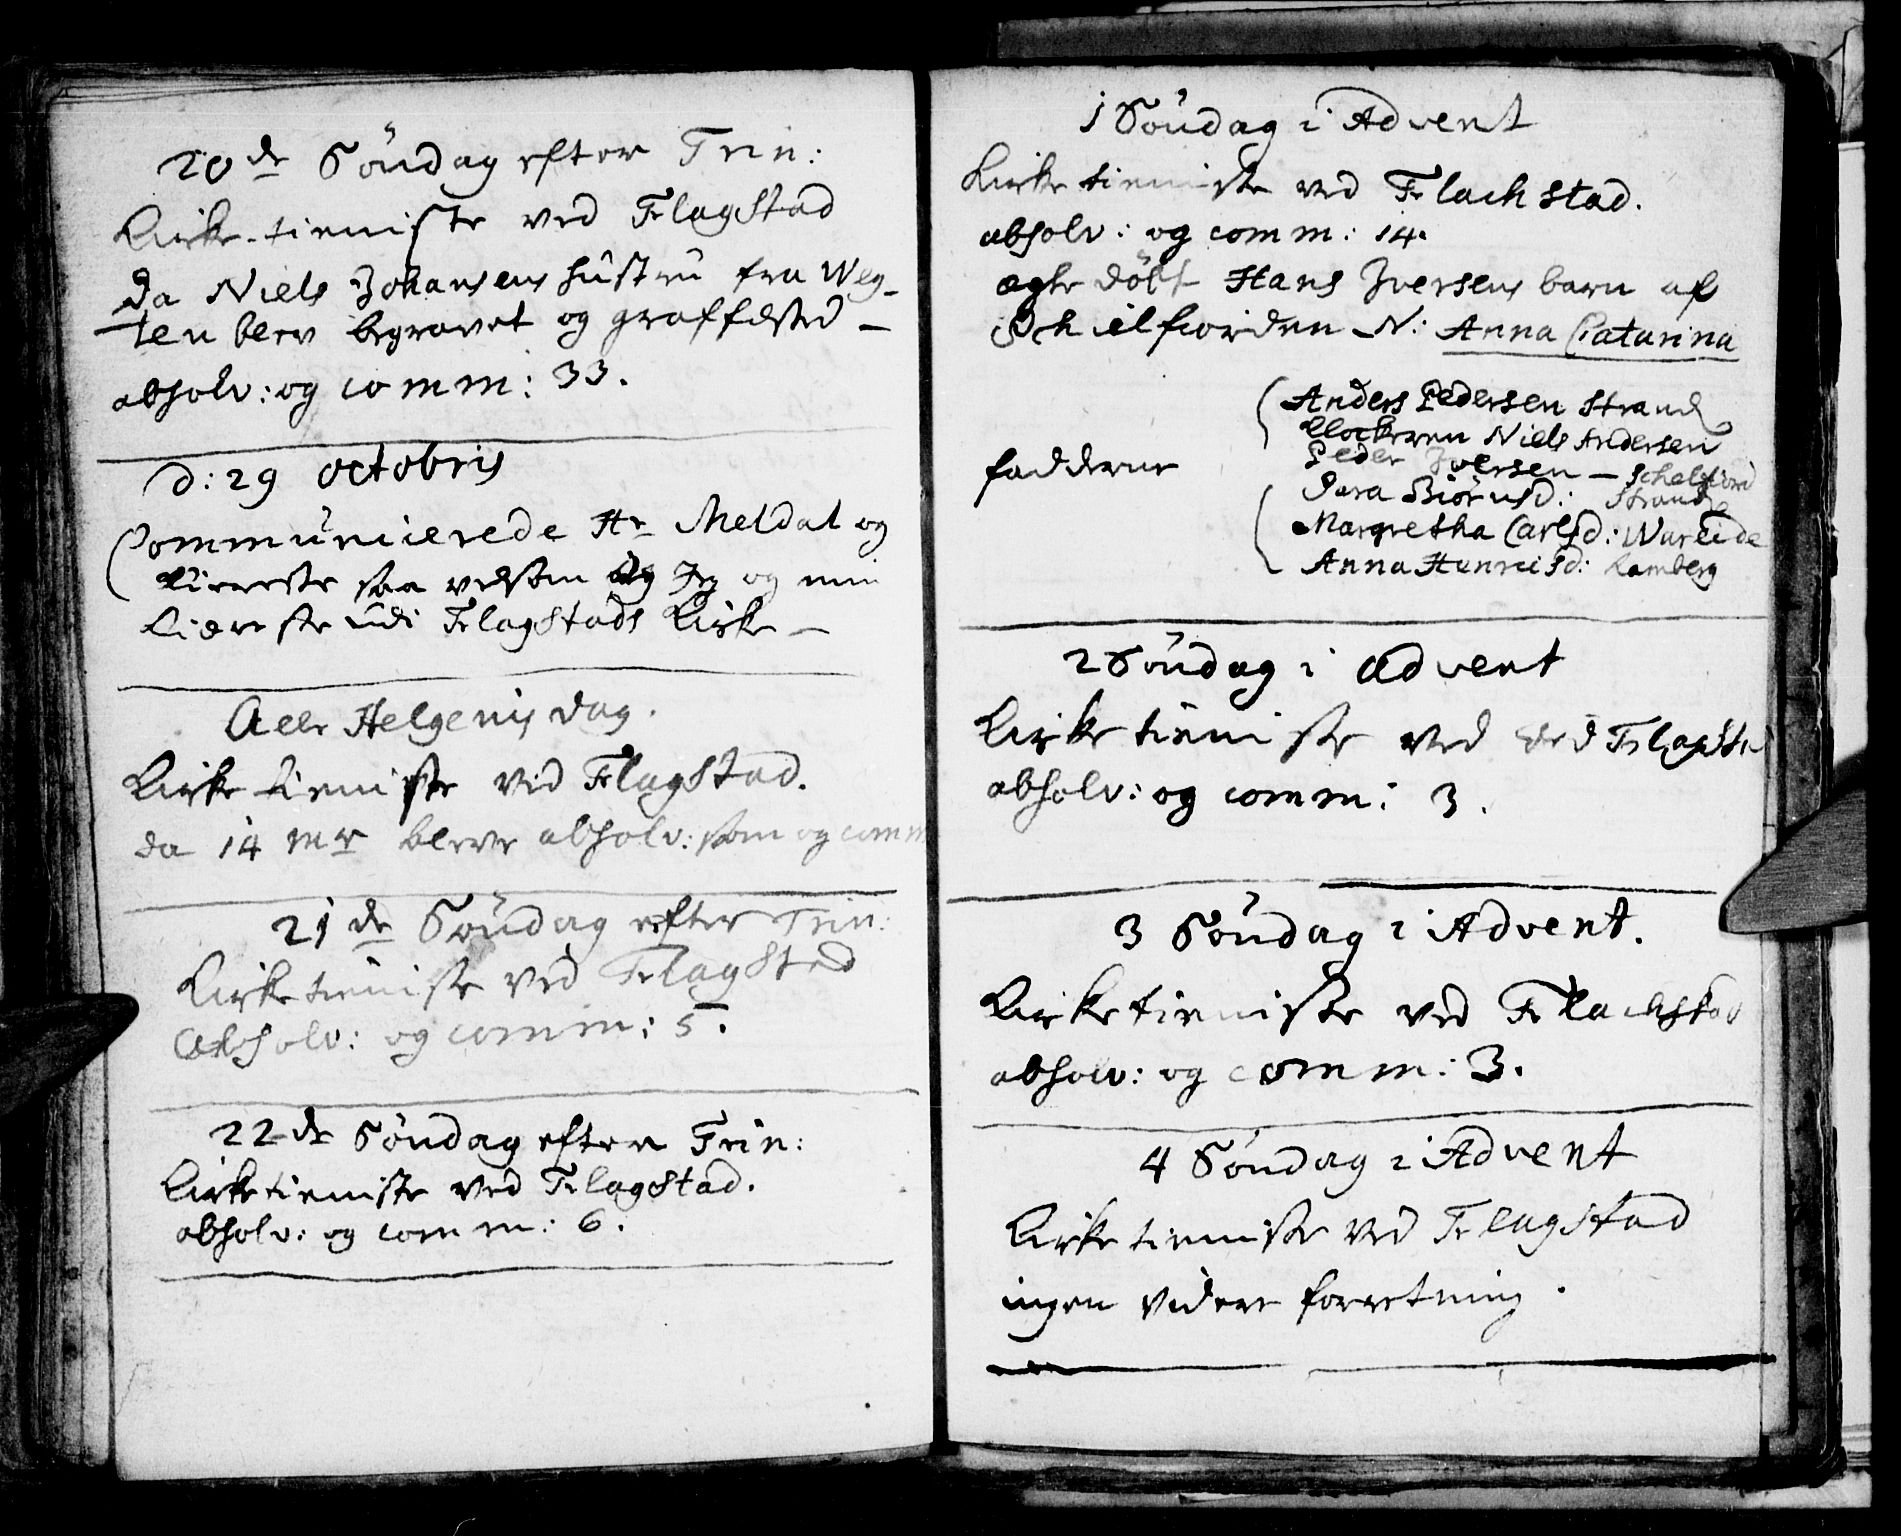 20de Söndag efter Trin:
Kirke-tieniste ved FlagStad
da Niels Johansens hustru fra Weg-
ten blev begravet og graffæsted —
absolv: og comm: 33.
d: 29 octobris
Communicierede Hr Meldal og
Kiereste saa velsom Jeg og min
Kiereste udi FlagStads Kirke —
Alle Helgenis dag.
Kirke tieniste ved FlagStad.
da 14 mr bleve absolv: som og comm
21de Söndag efter Trin:
Kirke tieniste ved FlagStad
Absolv: og comm: 5.
22de Söndag efter Trin:
Kirke tieniste ved FlagStad.
absolv: og comm: 6.
1 Söndag i Advent
Kirke tieniste ved Flachstad.
absolv: og comm: 14.
ægte döbt Hans Iversens barn af
Schielfiorden N: Anna Catarina
faddrene
Anders Pedersen Strand
Klockeren Niels Andersen
Peder Iversen — Schelfiord
Sara Biörnsd: Strand
Margretha Carlsd: Wareide
Anna Henricsd: Ramberg
2 Söndag i Advent
Kirke tieniste ved ved FlagSta
absolv: og comm: 3.
3 Söndag i Advent.
Kirke tieniste ved Flachstad
absolv: og comm: 3.
4 Söndag i Advent
Kirke tieniste ved FlagStad
ingen videre forretning.